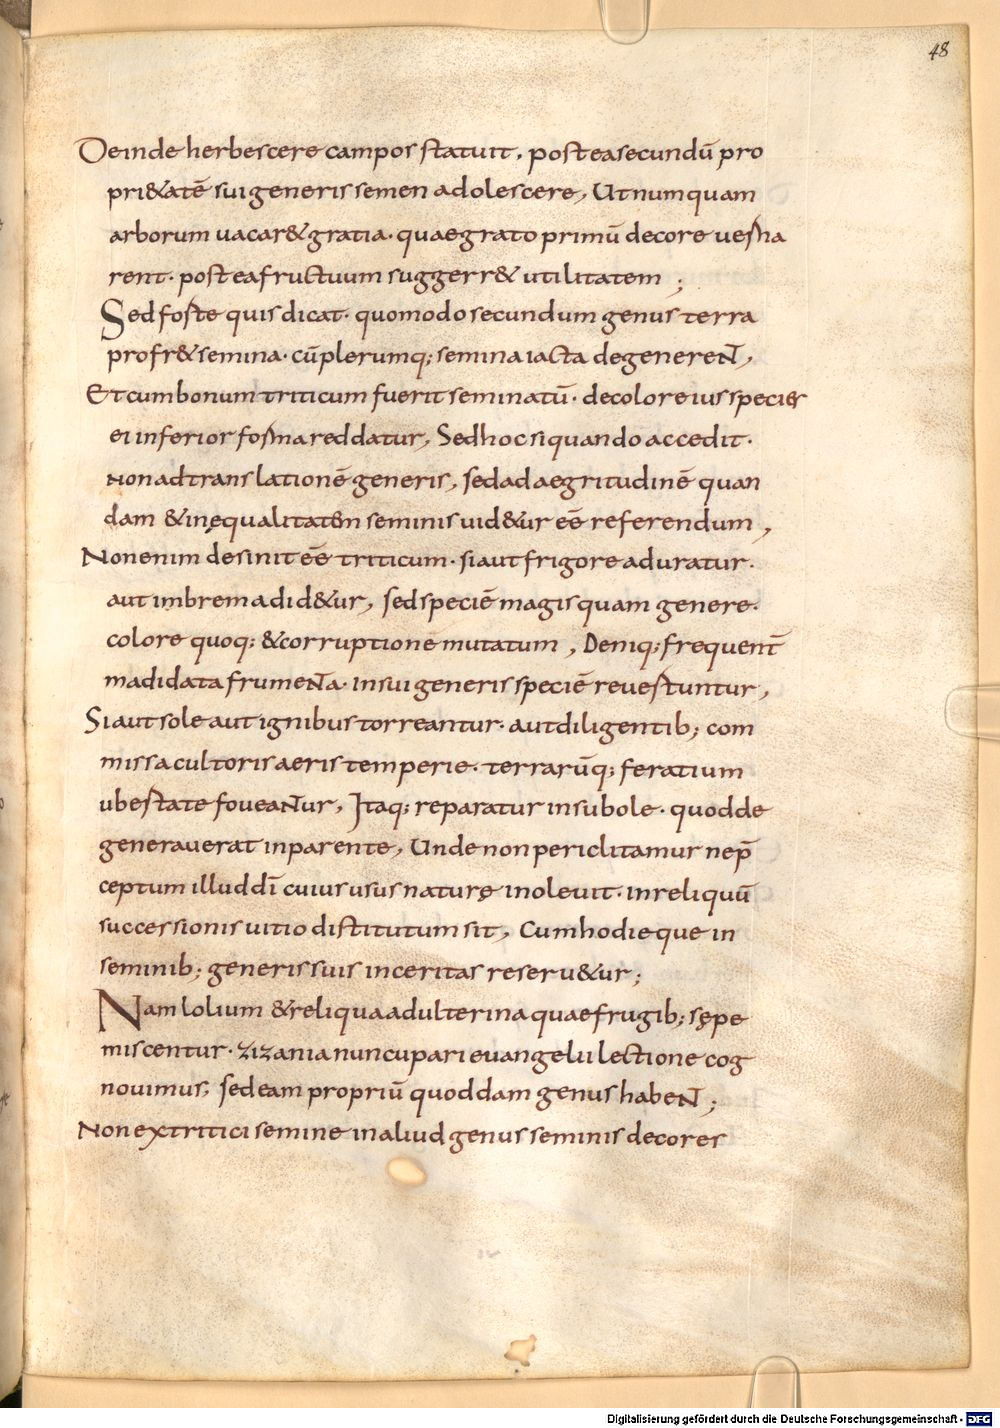 48
Deinde herbescere campos statuit. postea secundū pro
pri&atē sui generis semen adolescere, Ut numquam
arborum uacar& gratia. quae grato primū decore uesti
rent. postea fructuum suggerr& utilitatem ;
Sed forte quis dicat. quomodo secundum genus terra
profr& semina. cū plerumq; semina iacta degenerent,
Et cum bonum triticum fuerit seminatū. decolore ius species
ei inferior forma reddatur, Sed hoc si quando accedit.
non ad translationē generis, sed ad aegritudinē quan
dam & inęqualitatem seminis uid&ur eē referendum,
Non enim desinit eē triticum. si aut frigore aduratur.
aut imbre madid&ur, sed speciē magis quam genere.
colore quoq; & corruptione mutatum, Deniq; frequent̄
madidata frumenta. in sui generis speciē reuestuntur,
Si aut sole aut ignibus torreantur. aut diligentib; com
missa cultoris aeris temperie. terrarūq; feratium
ubestate foueantur, Itaq; reparatur in subole. quod de
generauerat in parente, Unde non periclitamur ne p̄
ceptum illud dī cuius usus naturę inoleuit. in reliquū
successionis uitio distitutum sit, Cum hodieque in
seminib; generis suis inceritas reseru&ur;
Nam lolium & reliqua adulterina quae frugib; sępe
miscentur. zizania nuncupari euangelii lectione cog
nouimus, sed eam propriū quoddam genus habent;
Non ex tritici semine in aliud genus seminis decores
Digitalisierung gefördert durch die Deutsche Forschungsgemeinschaft - DFG